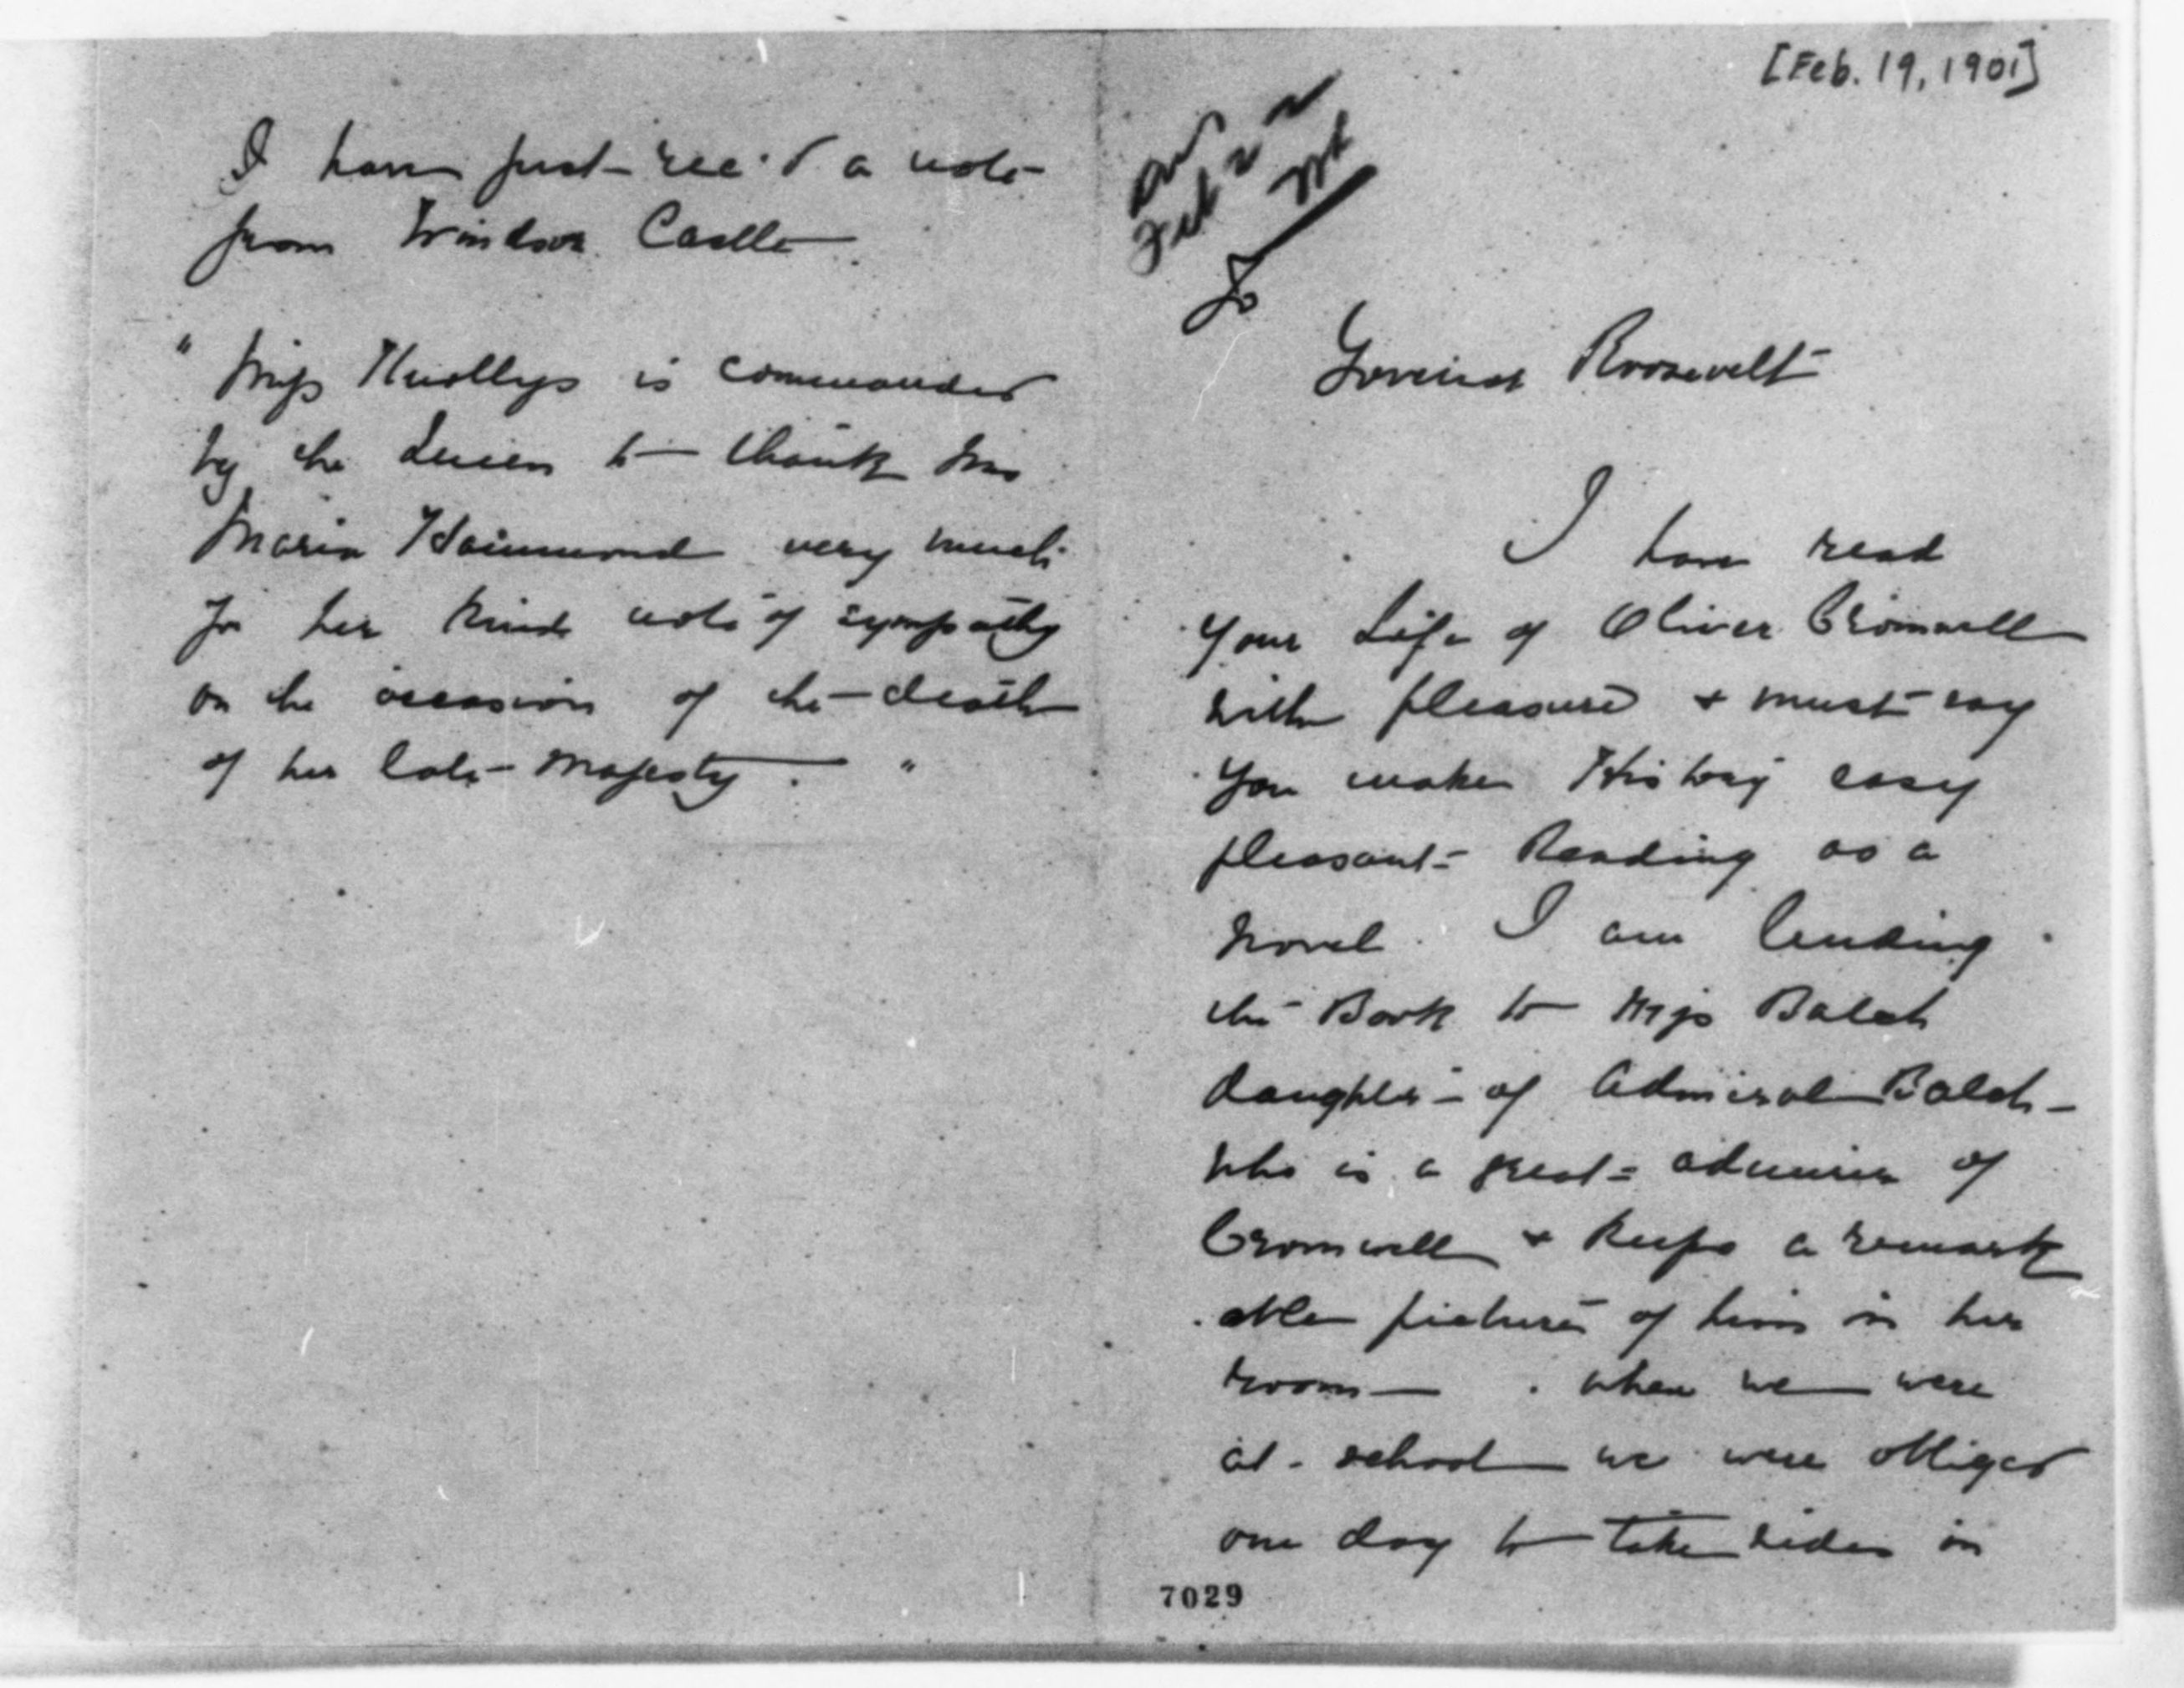 [Feb. 19, 1901]
Ans
Feb 22
Governor Roosevelt
I have read
your Life of Oliver Cromwell
with pleasure & must say
you make History easy
pleasant Reading as a
novel. I am lending
the Book to Miss Balch
daughter of Admiral Balch
who is a great admirer of
Cromwell & keeps a remark
able picture of him in her
room — . when we were
at school we were obliged
one day to take sides in
7029
I have just rec'd a note
from Windsor Castle.
" Miss Knollys is commanded
by the Queen to thank Mrs
Maria Hammond very much
for her kind note of sympathy
on the occasion of the death
of her late Majesty. "